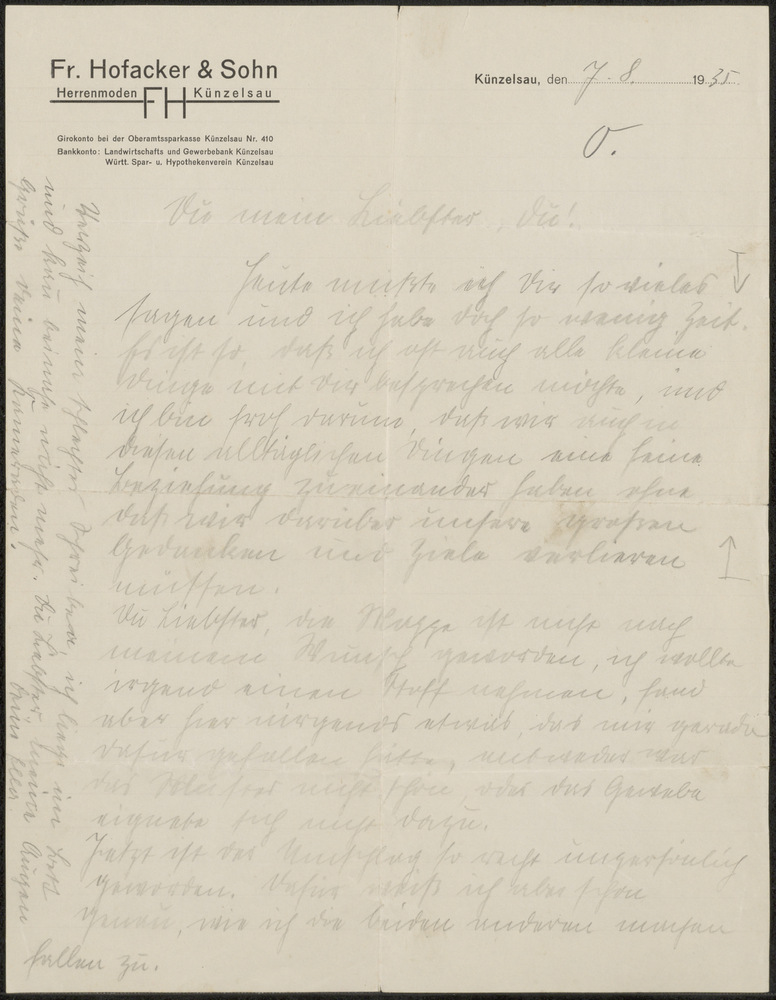 Fr. Hofacker & Sohn
Herrenmoden FH Künzelsau
Girokonto bei der Oberamtssparkasse Künzelsau Nr. 410
Bankkonto: Landwirtschafts und Gewerbebank Künzelsau
Württ. Spar- u. Hypothekenverein Künzelsau
Künzelsau, den 7. 8. 1935.
O.
Du mein Liebster, Du!
Heute müßte ich Dir so vieles
sagen und ich habe doch so wenig Zeit.
Es ist so, daß ich oft auch alle kleine
Dinge mit Dir besprechen möchte, und
ich bin froh darum, daß wir auch in
diesen alltäglichen Dingen eine feine
Beziehung zueinander haben ohne
daß wir darüber unsere großen
Gedanken und Ziele verlieren
müssen.
Du Liebster, die Mappe ist nicht nach
meinem Wunsch geworden, ich wollte
irgend einen Stoff nehmen, fand
aber hier nirgends etwas, das mir gerade
dafür gefallen hätte, entweder war
das Muster nicht schön oder das Gewebe
eignete sich nicht dazu.
Jetzt ist der Umschlag so recht unpersönlich
geworden. Dafür weiß ich aber schon
genau, wie ich die beiden anderen machen
Verzeih mein schlechtes Schreiben, ich liege im Bett
und kann beinahe nicht mehr. Du Liebster meine Augen
fallen zu.
Grüße Deine Kameraden!
Dein